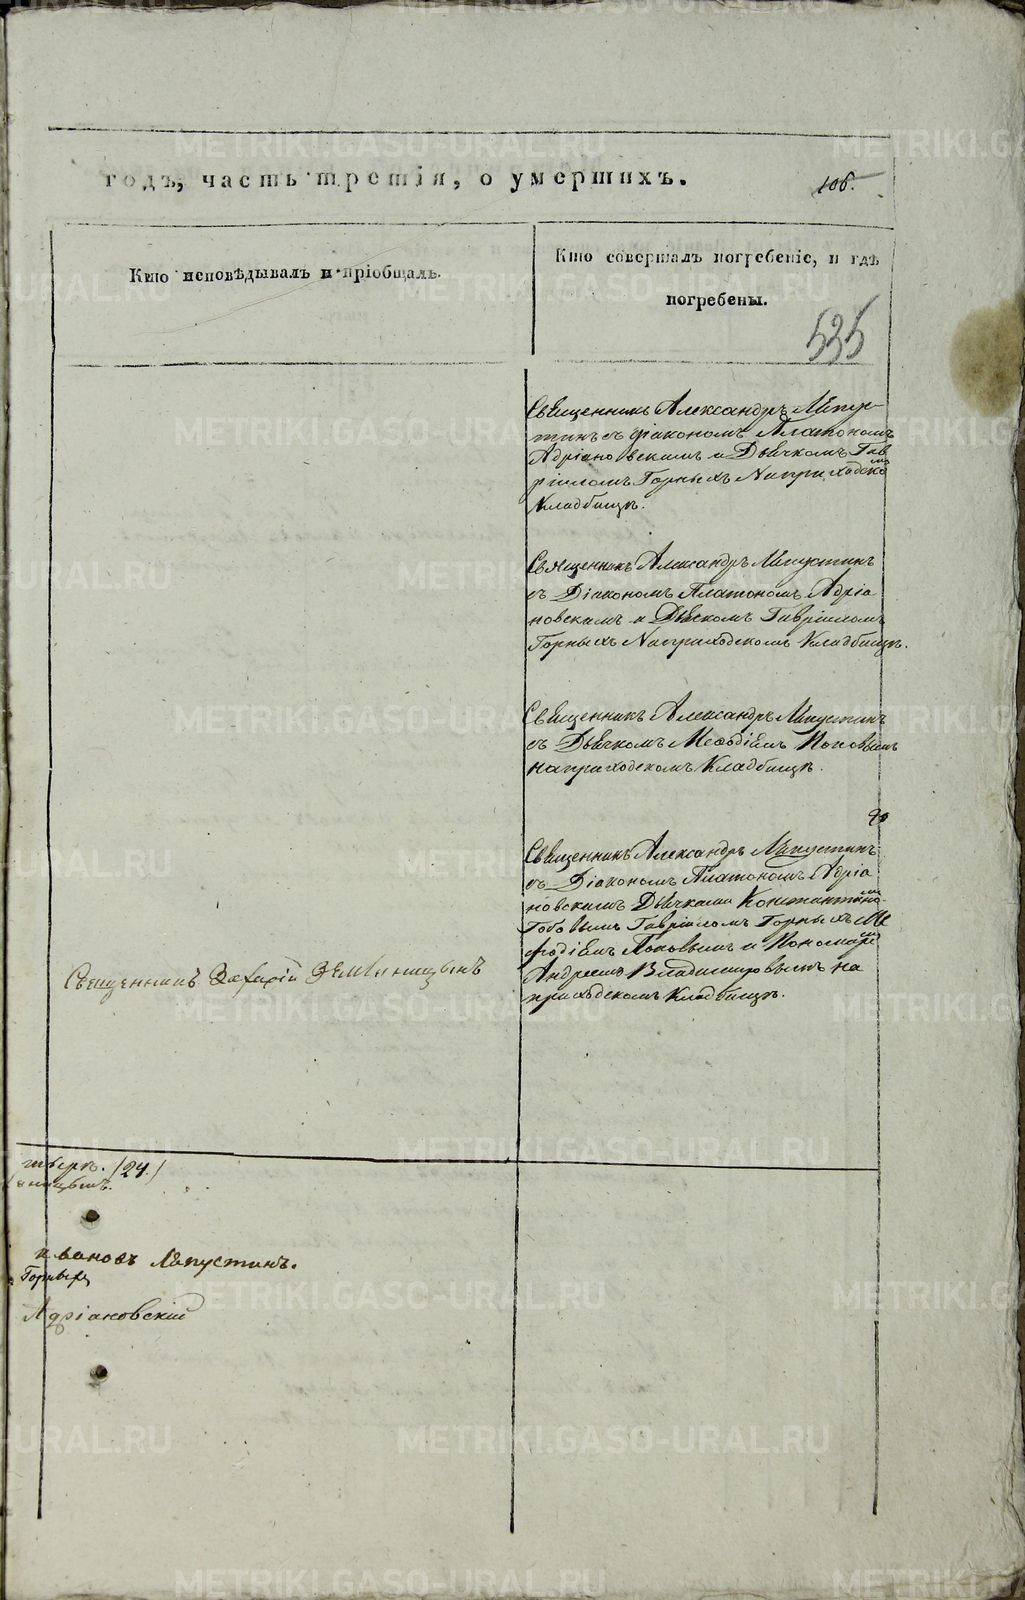 годъ, часть третія, о умершихъ.
106.
Кто исповѣдывалъ и пріобщалъ.
Кто совершалъ погребеніе, и гдѣ
погребены.
535
Священникъ Александръ Лапус-
тинъ съ Діакономъ Платономъ
Адріановскимъ и Дьячкомъ Гав
ріиломъ Горныхъ На приходско
мъ
Кладбищѣ.
Священникъ Александръ Лапустинъ
съ Діакономъ Платономъ Адріа
новскимъ и Дьячкомъ Гавріиломъ
Горныхъ На приходскомъ Кладбищѣ.
Священникъ Александръ Лапустинъ
съ Дьячкомъ Меѳодіемъ Поповымъ
на приходскомъ Кладбищѣ.
Священникъ Александръ Лапустинъ
съ Діакономъ Платономъ Адріа
новскимъ Дьячками Константино
мъ
Гавріиломъ Горныхъ Ме
ѳодіемъ Поповымъ и Пономаре
мъ
Андреемъ Владимировымъ на
приходскомъ Кладбищѣ.
Священникъ Захарій Земляницынъ
/24./
ницынъ.
Ивановъ Лапустинъ.
Горныхъ
Адріановскій
METRIKI.GASO-URAL.RU